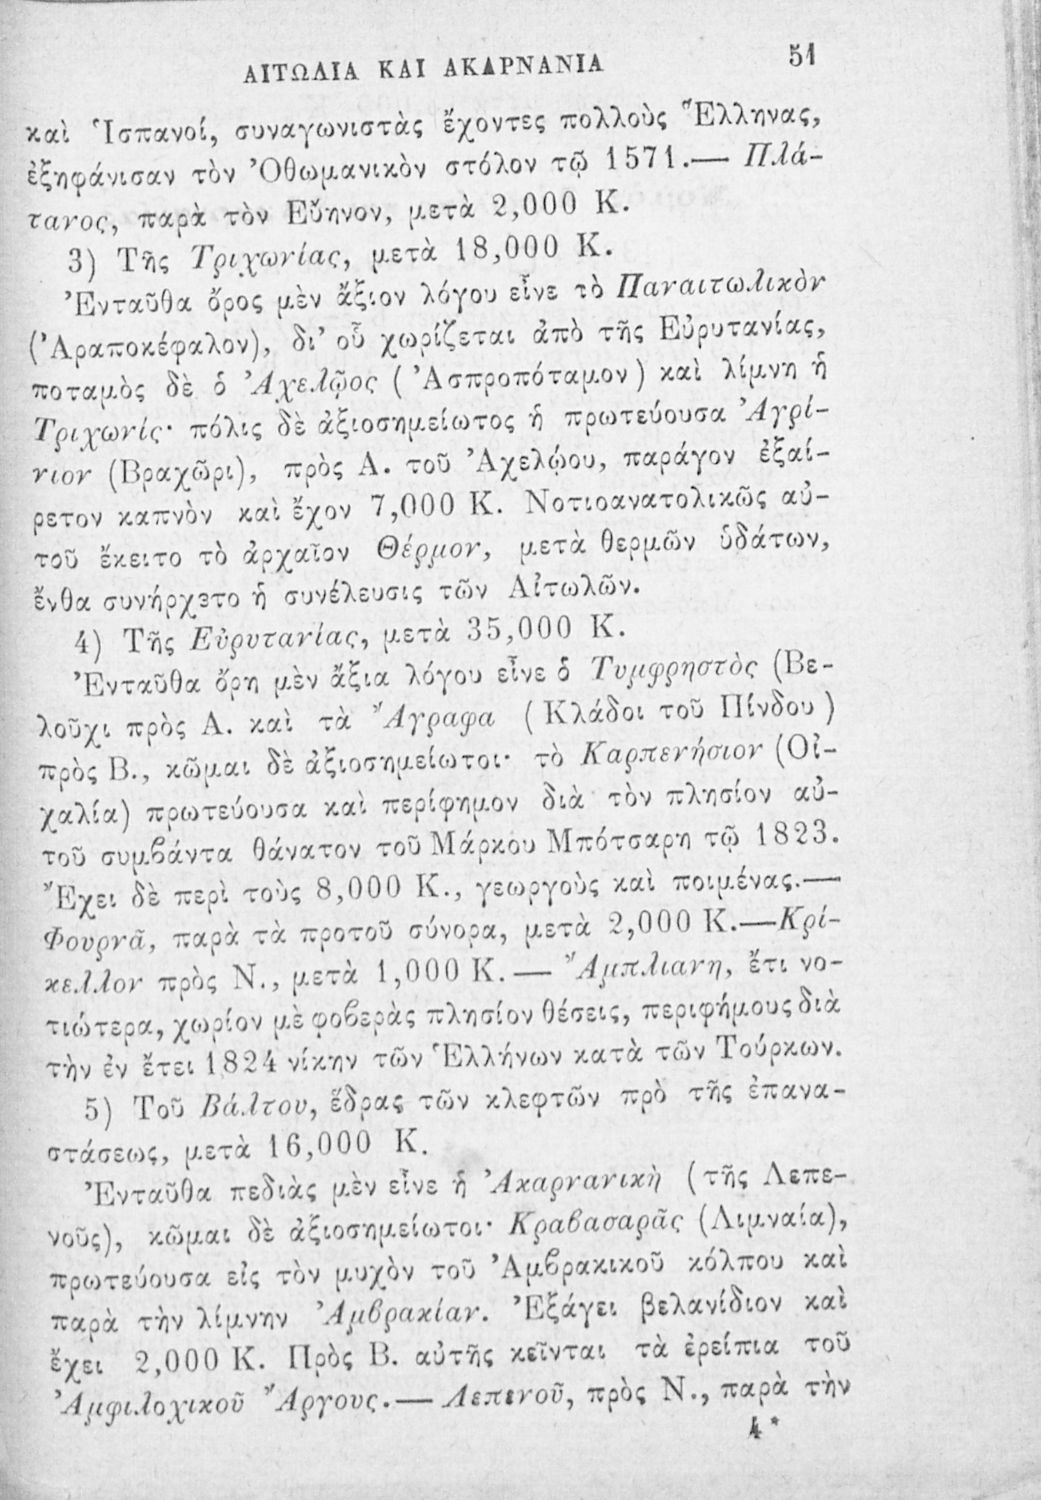 ΑΙΤΩΛΙΑ ΚΑΙ ΑΚΑΡΝΑΝΙΑ 51
καὶ Ἱσπανοί, συναγωνιστὰς ἔχοντες πολλοὺς Ἕλληνας,
ἐξηφάνισαν τὸν Ὀθωμανικὸν στόλον τῷ 1571.— Πλά-
τανος, παρὰ τὸν Εὔηνον, μετὰ 2,000 Κ.
3) Τῆς Τριχωνίας, μετὰ 18,000 Κ.
Ἐνταῦθα ὄρος μὲν ἄξιον λόγου εἶνε τὸ Παναιτωλικὸν
(Ἀραποκέφαλον), δι’ οὗ χωρίζεται ἀπὸ τῆς Εὐρυτανίας,
ποταμὸς δὲ ὁ Ἀχελῷος (Ἀσπροπόταμον) καὶ λίμνη ἡ
Τριχωνίς· πόλις δὲ ἀξιοσημείωτος ἡ πρωτεύουσα Ἀγρί-
νιον (Βραχῶρι), πρὸς Α. τοῦ Ἀχελῴου, παράγον ἐξαί-
ρετον καπνὸν καὶ ἔχον 7,000 Κ. Νοτιοανατολικῶς αὐ-
τοῦ ἔκειτο τὸ ἀρχαῖον Θέρμον, μετὰ θερμῶν ὑδάτων,
ἔνθα συνήρχετο ἡ συνέλευσις τῶν Αἰτωλῶν.
4) Τῆς Εὐρυτανίας, μετὰ 35,000 Κ.
Ἐνταῦθα ὄρη μὲν ἄξια λόγου εἶνε ὁ Τυμφρηστὸς (Βε-
λοῦχι πρὸς Α. καὶ τὰ Ἄγραφα (Κλάδοι τοῦ Πίνδου)
πρὸς Β., κῶμαι δὲ ἀξιοσημείωτοι· τὸ Καρπενήσιον (Οἰ-
χαλία) πρωτεύουσα καὶ περίφημον διὰ τὸν πλησίον αὐ-
τοῦ συμβάντα θάνατον τοῦ Μάρκου Μπότσαρη τῷ 1823.
Ἔχει δὲ περὶ τοὺς 8,000 Κ., γεωργοὺς καὶ ποιμένας.—
Φουρνᾶ, παρὰ τὰ προτοῦ σύνορα, μετὰ 2,000 Κ.—Κρί-
κελλον πρὸς Ν., μετὰ 1,000 Κ.— Ἄμπλιανη, ἔτι νο-
τιώτερα, χωρίον μὲ φοβερὰς πλησίον θέσεις, περιφήμους διὰ
τὴν ἐν ἔτει 1824 νίκην τῶν Ἑλλήνων κατὰ τῶν Τούρκων.
5) Τοῦ Βάλτου, ἕδρας τῶν κλεφτῶν πρὸ τῆς ἐπανα-
στάσεως, μετὰ 16,000 Κ.
Ἐνταῦθα πεδιὰς μὲν εἶνε ἡ Ἀκαρνανικὴ (τῆς Λεπε-
νοῦς), κῶμαι δὲ ἀξιοσημείωτοι· Κραβασαρᾶς (Λιμναία),
πρωτεύουσα εἰς τὸν μυχὸν τοῦ Ἀμβρακικοῦ κόλπου καὶ
παρὰ τὴν λίμνην Ἀμβρακίαν. Ἐξάγει βελανίδιον καὶ
ἔχει 2,000 Κ. Πρὸς Β. αὐτῆς κεῖνται τὰ ἐρείπια τοῦ
Ἀμφιλοχικοῦ Ἄργους.— Λεπενοῦ, πρὸς Ν., παρὰ τὴν
4*